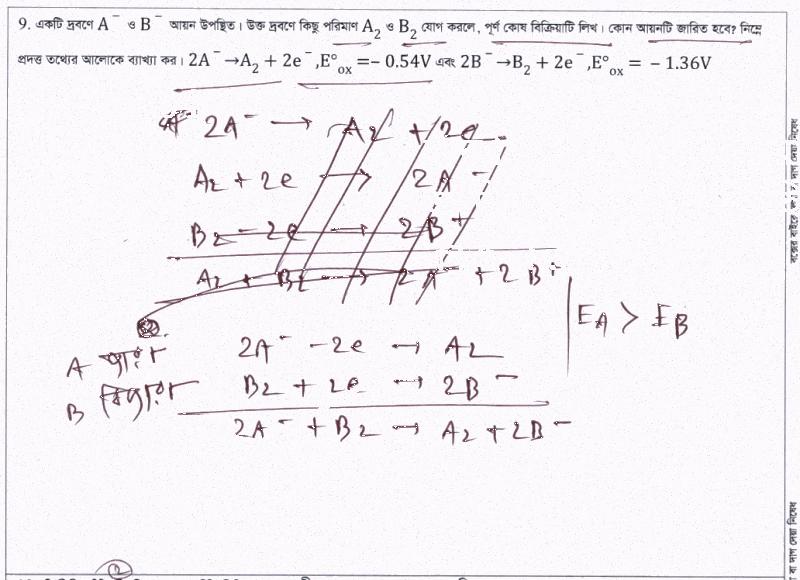 9. একটি দ্রবণে A⁻ ও B⁻ আয়ন উপস্থিত। উক্ত দ্রবণে কিছু পরিমাণ A₂ ও B₂ যোগ করলে, পূর্ণ কোষ বিক্রিয়াটি লিখ। কোন আয়নটি জারিত হবে? নিম্নে
প্রদত্ত তথ্যের আলোকে ব্যাখ্যা কর। 2A⁻→A₂ + 2e⁻,E°ox =− 0.54V এবং 2B⁻→B₂ + 2e⁻,E°ox = − 1.36V
2A⁻ → A₂ + 2e
A₂ + 2e → 2A⁻
B₂ − 2e → 2B⁺
A₂ + B₂ → 2A⁻ + 2B⁺
E_A > E_B
A 2A⁻ − 2e → A₂
B B₂ + 2e → 2B⁻
2A⁻ + B₂ → A₂ + 2B⁻
2